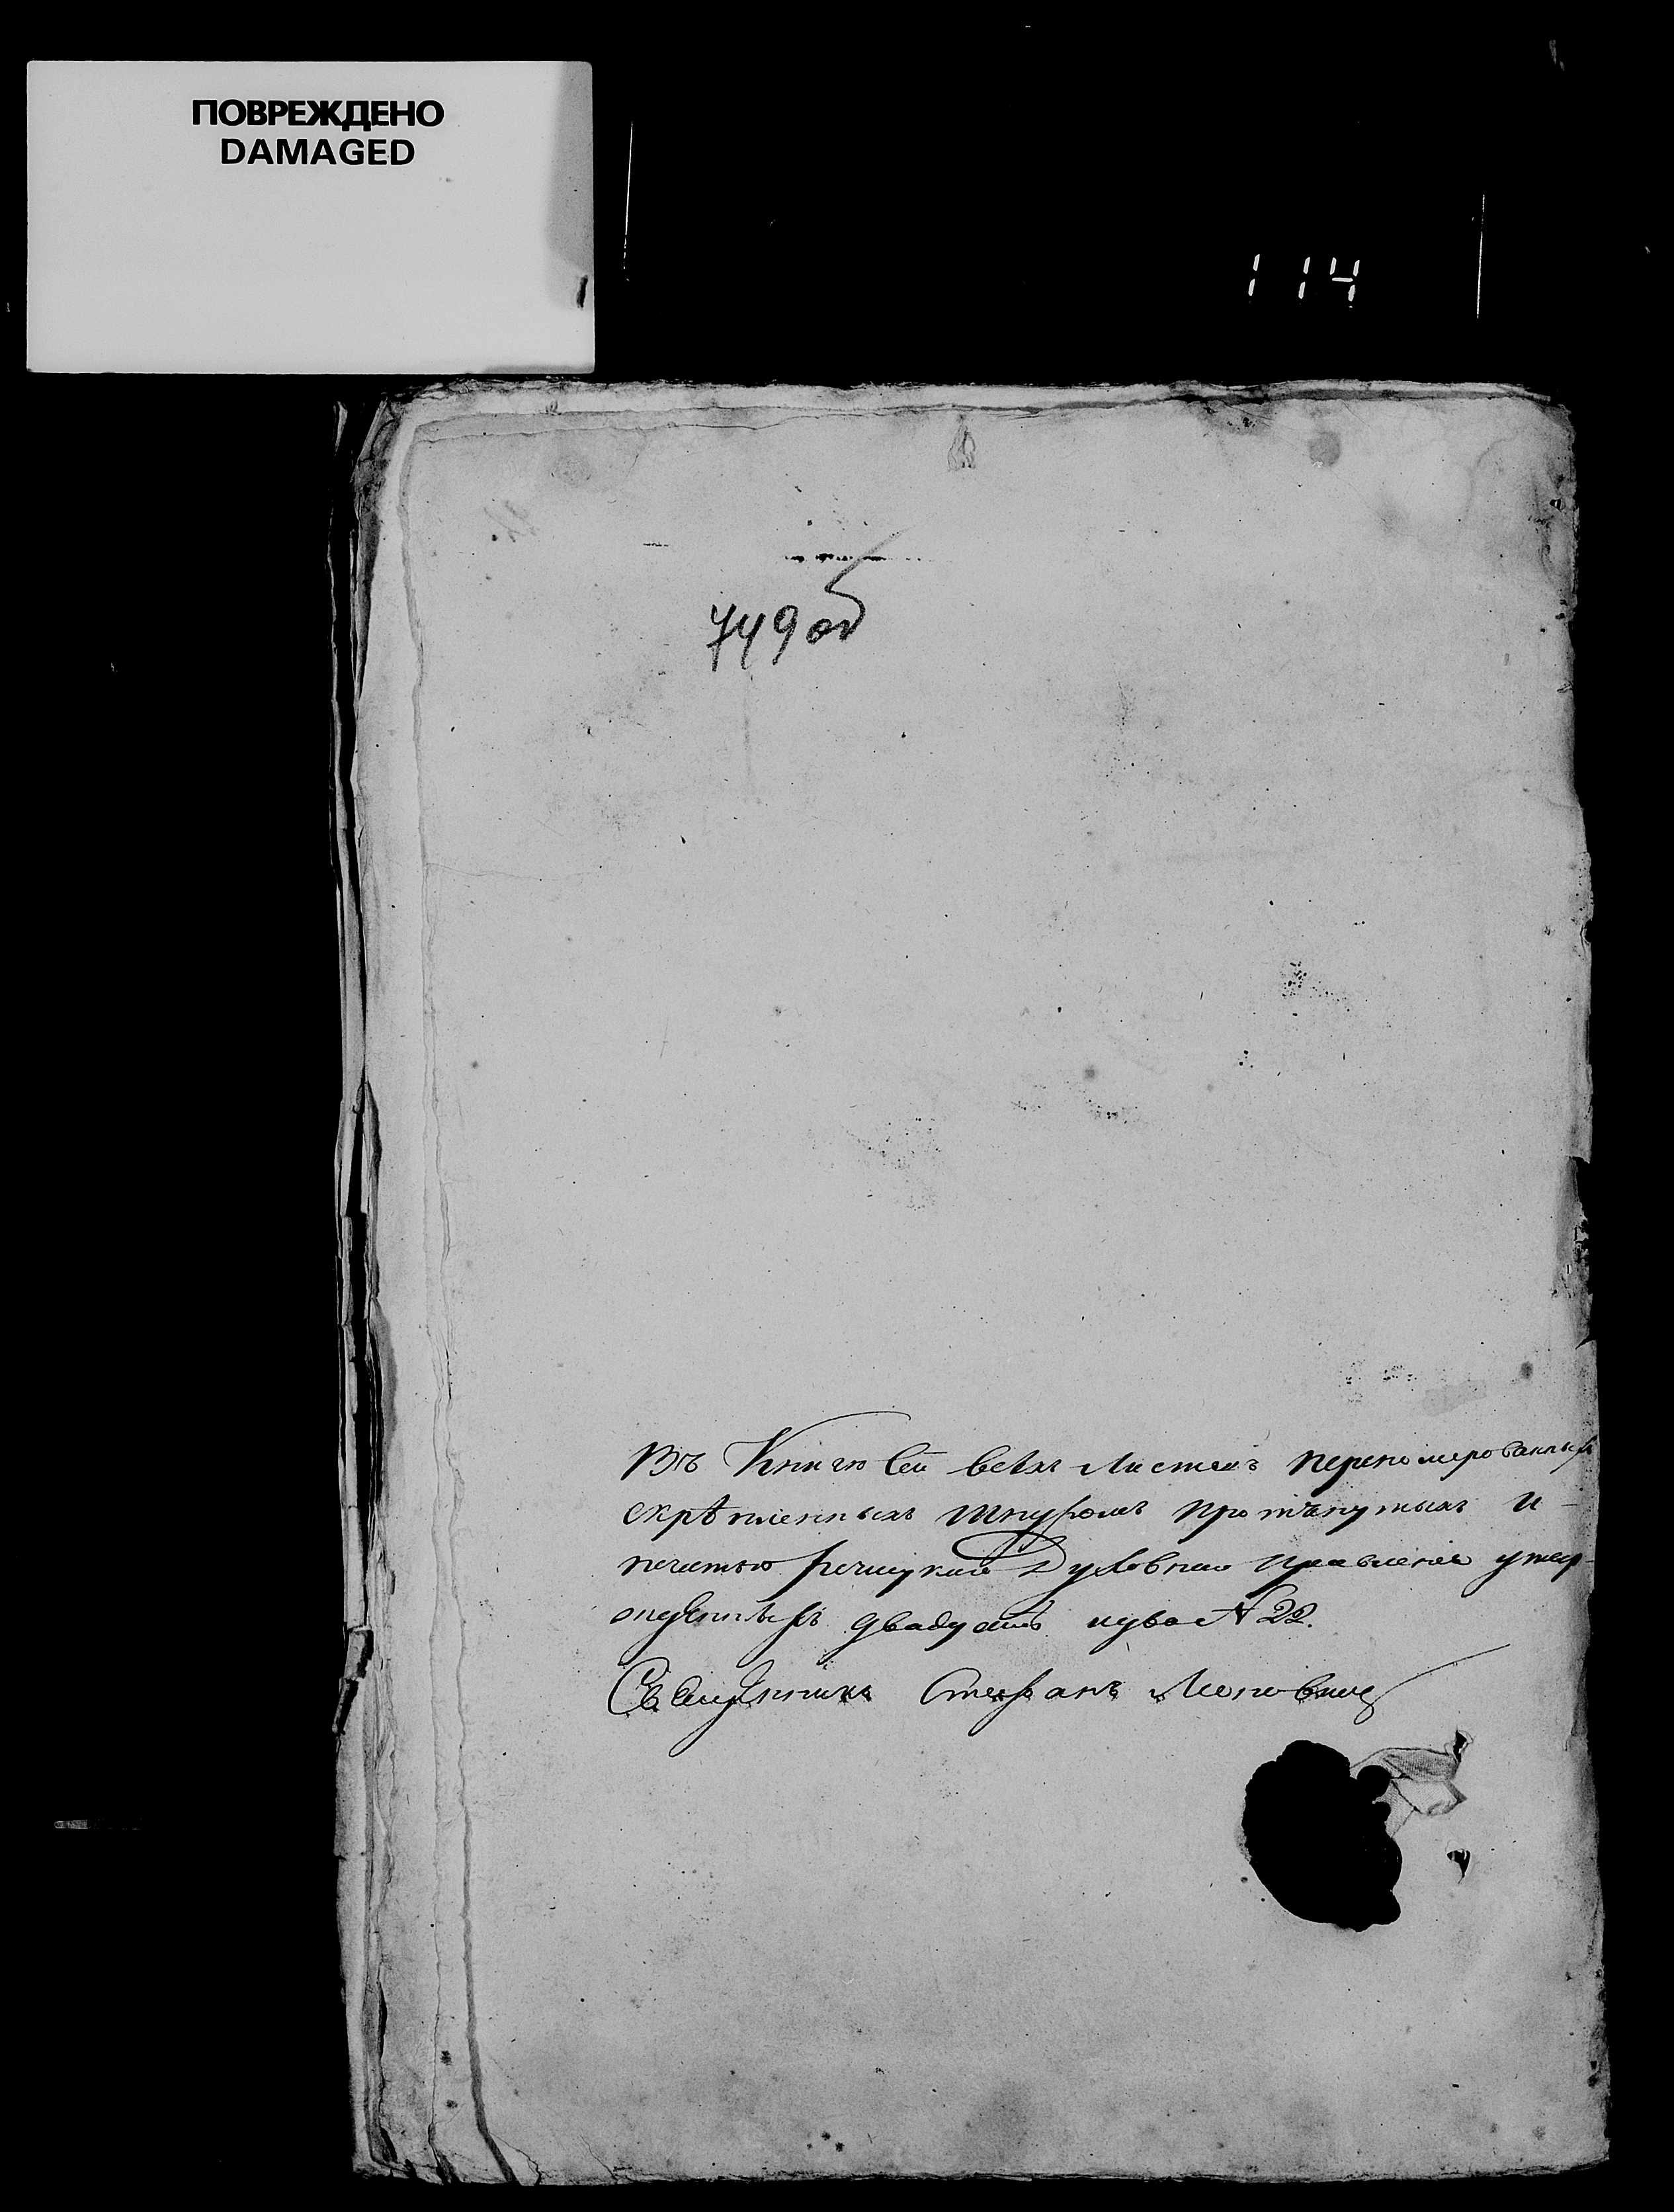 ПОВРЕЖДЕНО
DAMAGED
114
749об
Въ Книгѣ сей всѣхъ листовъ перенумерованныхъ
скрѣпленныхъ шнуромъ протянутыхъ и
печатью Речицкаго Духовнаго Правленія утвер-
жденныхъ двадцать два 22.
Священникъ Стефанъ